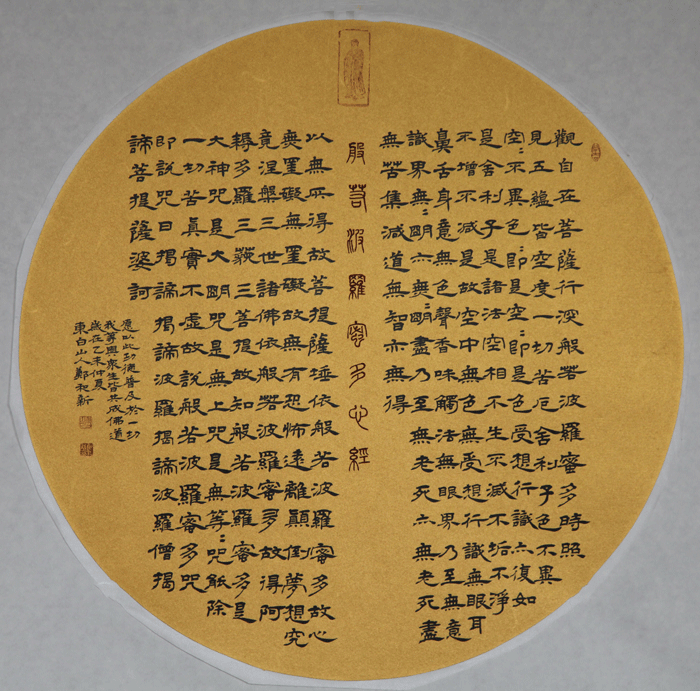 觀自在菩薩行深般若波羅蜜多時照
見五蘊皆空度一切苦厄舍利子色不異
空〻不異色〻即是空〻即是色受想行識亦復如
是舍利子是諸法空相不生不滅不垢不淨
不增不減是故空中無色無受想行識無眼耳
鼻舌身意無色聲香味觸法無眼界乃至無意
識界無〻明亦無〻明盡乃至無老死亦無老死盡
無苦集滅道無智亦無得
般若波羅蜜多心經
以無所得故菩提薩埵依般若波羅蜜多故心
無罣礙無罣礙故無有恐怖遠離顛倒夢想究
竟涅槃三世諸佛依般若波羅蜜多故得阿
耨多羅三藐三菩提故知般若波羅蜜多是
大神咒是大明咒是無上咒是無等〻咒能除
一切苦真實不虛故說般若波羅蜜多咒
即說咒曰揭諦揭諦波羅揭諦波羅僧揭
諦菩提薩婆訶
願以此功德普及於一切
我等與眾生皆共成佛道
歲在乙未仲夏
東白山人鄭新